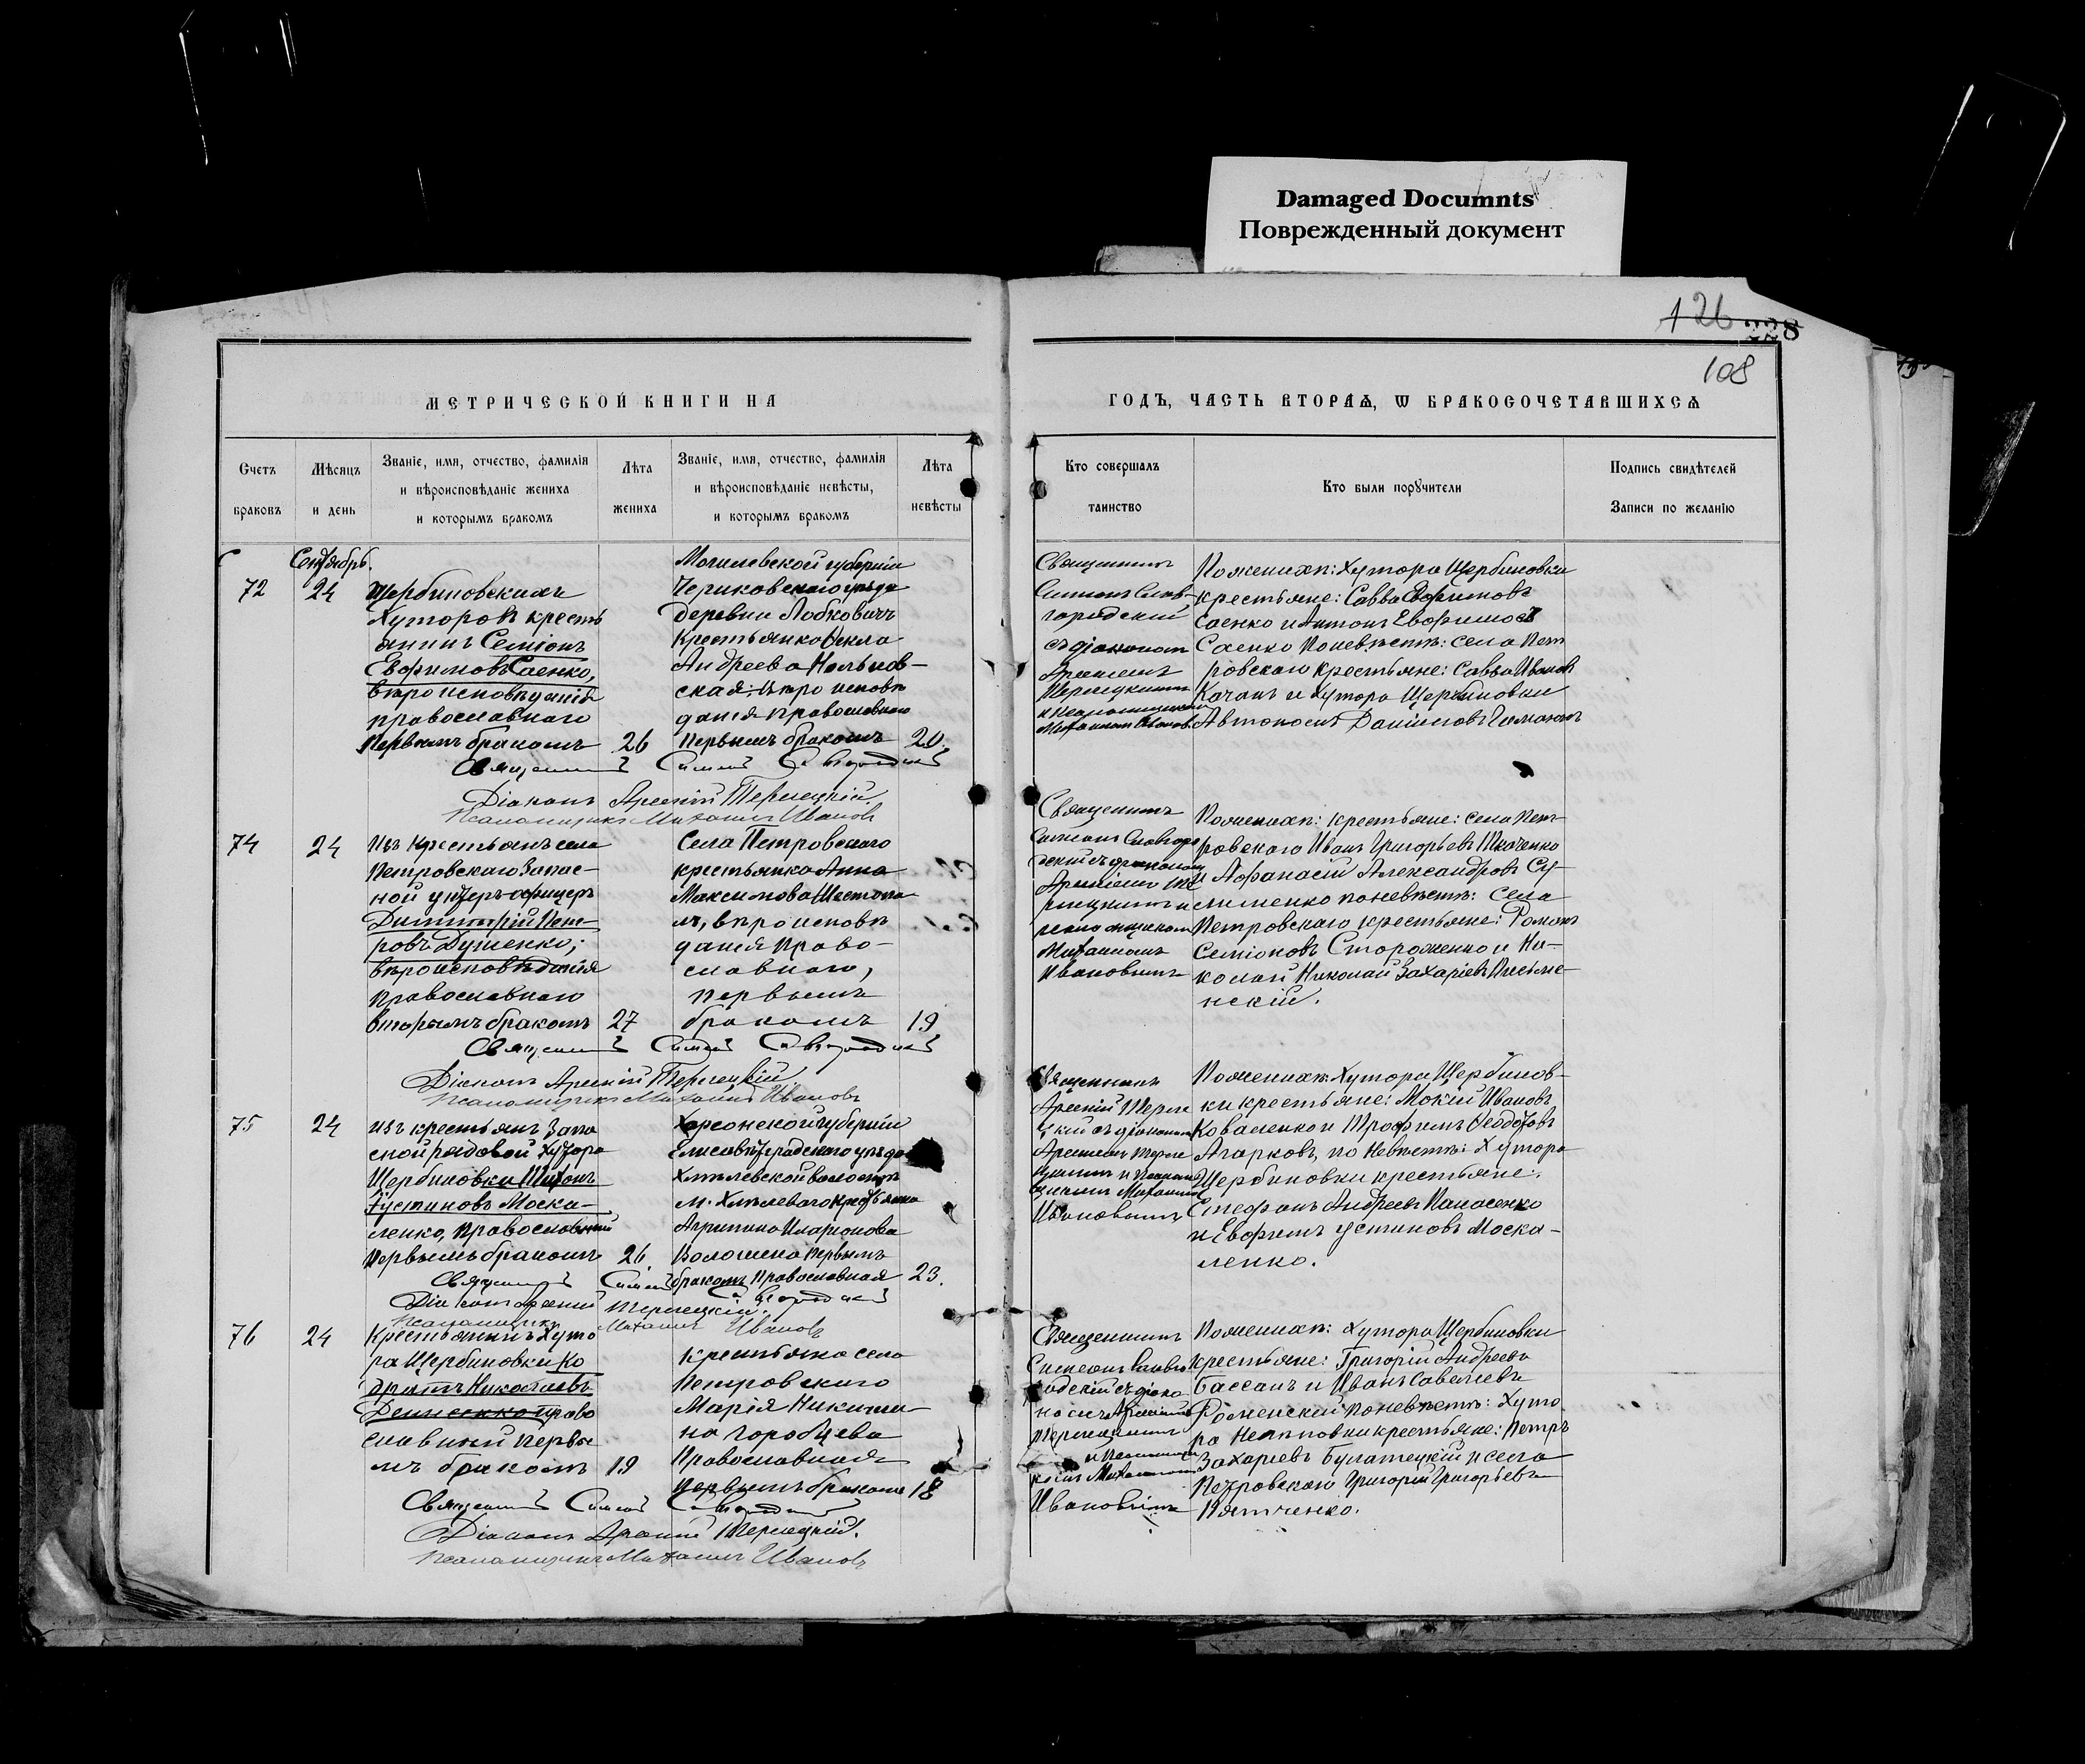 Damaged Documnts
Поврежденный документ
126
228
108
МЕТРИЧЕСКОЙ КНИГИ НА
ГОДЪ, ЧАСТЬ ВТОРАѦ, Ѡ БРАКОСОЧЕТАВШИХСѦ
Счетъ браковъ
Мѣсяцъ и день
Званіе, имя, отчество, фамилія
и вѣроисповѣданіе жениха
и которымъ бракомъ
Лѣта жениха
Званіе, имя, отчество, фамилія
и вѣроисповѣданіе невѣсты,
и которымъ бракомъ
Лѣта невѣсты
Кто совершалъ таинство
Кто были порꙋчители
Подпись свидѣтелей
Записи по желанію
Сентябрь.
72
24
Щербиновскихъ
Хуторовъ кресть
янинъ Семіонъ
Евфимовъ Саенко,
вѣроисповѣданія
православнаго
первымъ бракомъ
26
Могилевской губерніи
Чериковскаго уѣзда
деревни Лобковичъ
крестьянка Фекла
Андреева
ская, вѣро исповѣ
данія православнаго
первымъ бракомъ
20.
Священникъ
Симеонъ Слав-
городскій
съ діакономъ
Арсеніемъ
Терлецкимъ
и псаломщикомъ
Михаиломъ Ивановъ
По женихѣ: Хутора Щербиновки
крестьяне: Савва Евфимовъ
Саенко и Антонъ Евфимовъ
Саенко По невѣстѣ: села Пет
ровскаго крестьяне: Савва Ивановъ
Качанъ и Хутора Щербиновки
Автономъ Даніиловъ
Священникъ Симеонъ Славгородскій
Діаконъ Арсеній Терлецкій
Псаломщикъ Михаилъ Ивановъ
74
24
Изъ крестьянъ села
Петровскаго Запас-
ной унтеръ-офицеръ
Димитрій Пет-
ровъ Душенко,
вѣроисповѣданія
православнаго
вторымъ бракомъ
27
Села Петровскаго
крестьянка Анна
Максимова Шестопа
лъ, вѣроисповѣ
данія право-
славнаго,
первымъ
бракомъ
19
Священникъ
Симеонъ Славгоро
дскій съ діакономъ
Арсеніемъ Те
рлецкимъ и
псаломщикомъ
Михаиломъ
Ивановымъ
По женихѣ: крестьяне: села Пет-
ровскаго Иванъ Григорьевъ Ткаченко
и Афанасій Александровъ Су-
лименко по невѣстѣ: Села
Петровскаго крестьяне: Романъ
Семіоновъ Стороженко и Ни-
колай Николай Захаріевъ Писме-
нскій.
Священникъ Симеонъ Славгородскій
Діаконъ Арсеній Терлецкій
Псаломщикъ Михаилъ Ивановъ
75
24
изъ крестьянъ Запа
сной рядовой Хутора
Щербиновки Тихонъ
Іустиновъ Моска-
ленко, православный
первымъ бракомъ
26
Херсонской губерніи
Елисаветградскаго уѣзда
Хмѣлевской волости
м. Хмѣлеваго крестьянка
Агрипина Иларіонова
Волошена первымъ
бракомъ Православная
23.
Священникъ
Арсеній Терле
цкій съ діакономъ
Арсеніемъ Терле
цкимъ и псалом
щикомъ Михаиломъ
Ивановымъ
По женихѣ: Хутора Щербинов-
ки крестьяне: Мокій Ивановъ
Коваленко и Трофимъ Феодотовъ
Агарковъ, по невѣстѣ: Хутора
Щербиновки крестьяне:
Стефанъ Андреевъ Панасенко
и Евфимъ Устиновъ Моска-
ленко.
Священникъ Симеонъ Славгородскій
Діаконъ Арсеній Терлецкій.
Псаломщикъ Михаилъ Ивановъ
76
24
Крестьянинъ Хуто
ра Щербиновки Ко
дратъ Николаевъ
Денисенко право
славный первы
мъ бракомъ
19
Крестьянка села
Петровскаго
Марія Никити
на Горобцева
Православная
первымъ бракомъ
18
Священникъ
Симеонъ Славго
родскій съ діако
номъ Арсеніемъ
Терлецкимъ
и Псаломщи
комъ Михаиломъ
Ивановымъ
По женихѣ: Хутора Щербиновки
крестьяне: Григорій Андреевъ
Бассанъ и Иванъ Савельевъ
Роменскій по невѣстѣ: Хуто
ра Нелѣповки крестьяне: Петръ
Захаріевъ Булатецкій и села
Петровскаго Григорій Григорьевъ
Пятченко.
Священникъ Симеонъ Славгородскій
Діаконъ Арсеній Терлецкій.
Псаломщикъ Михаилъ Ивановъ